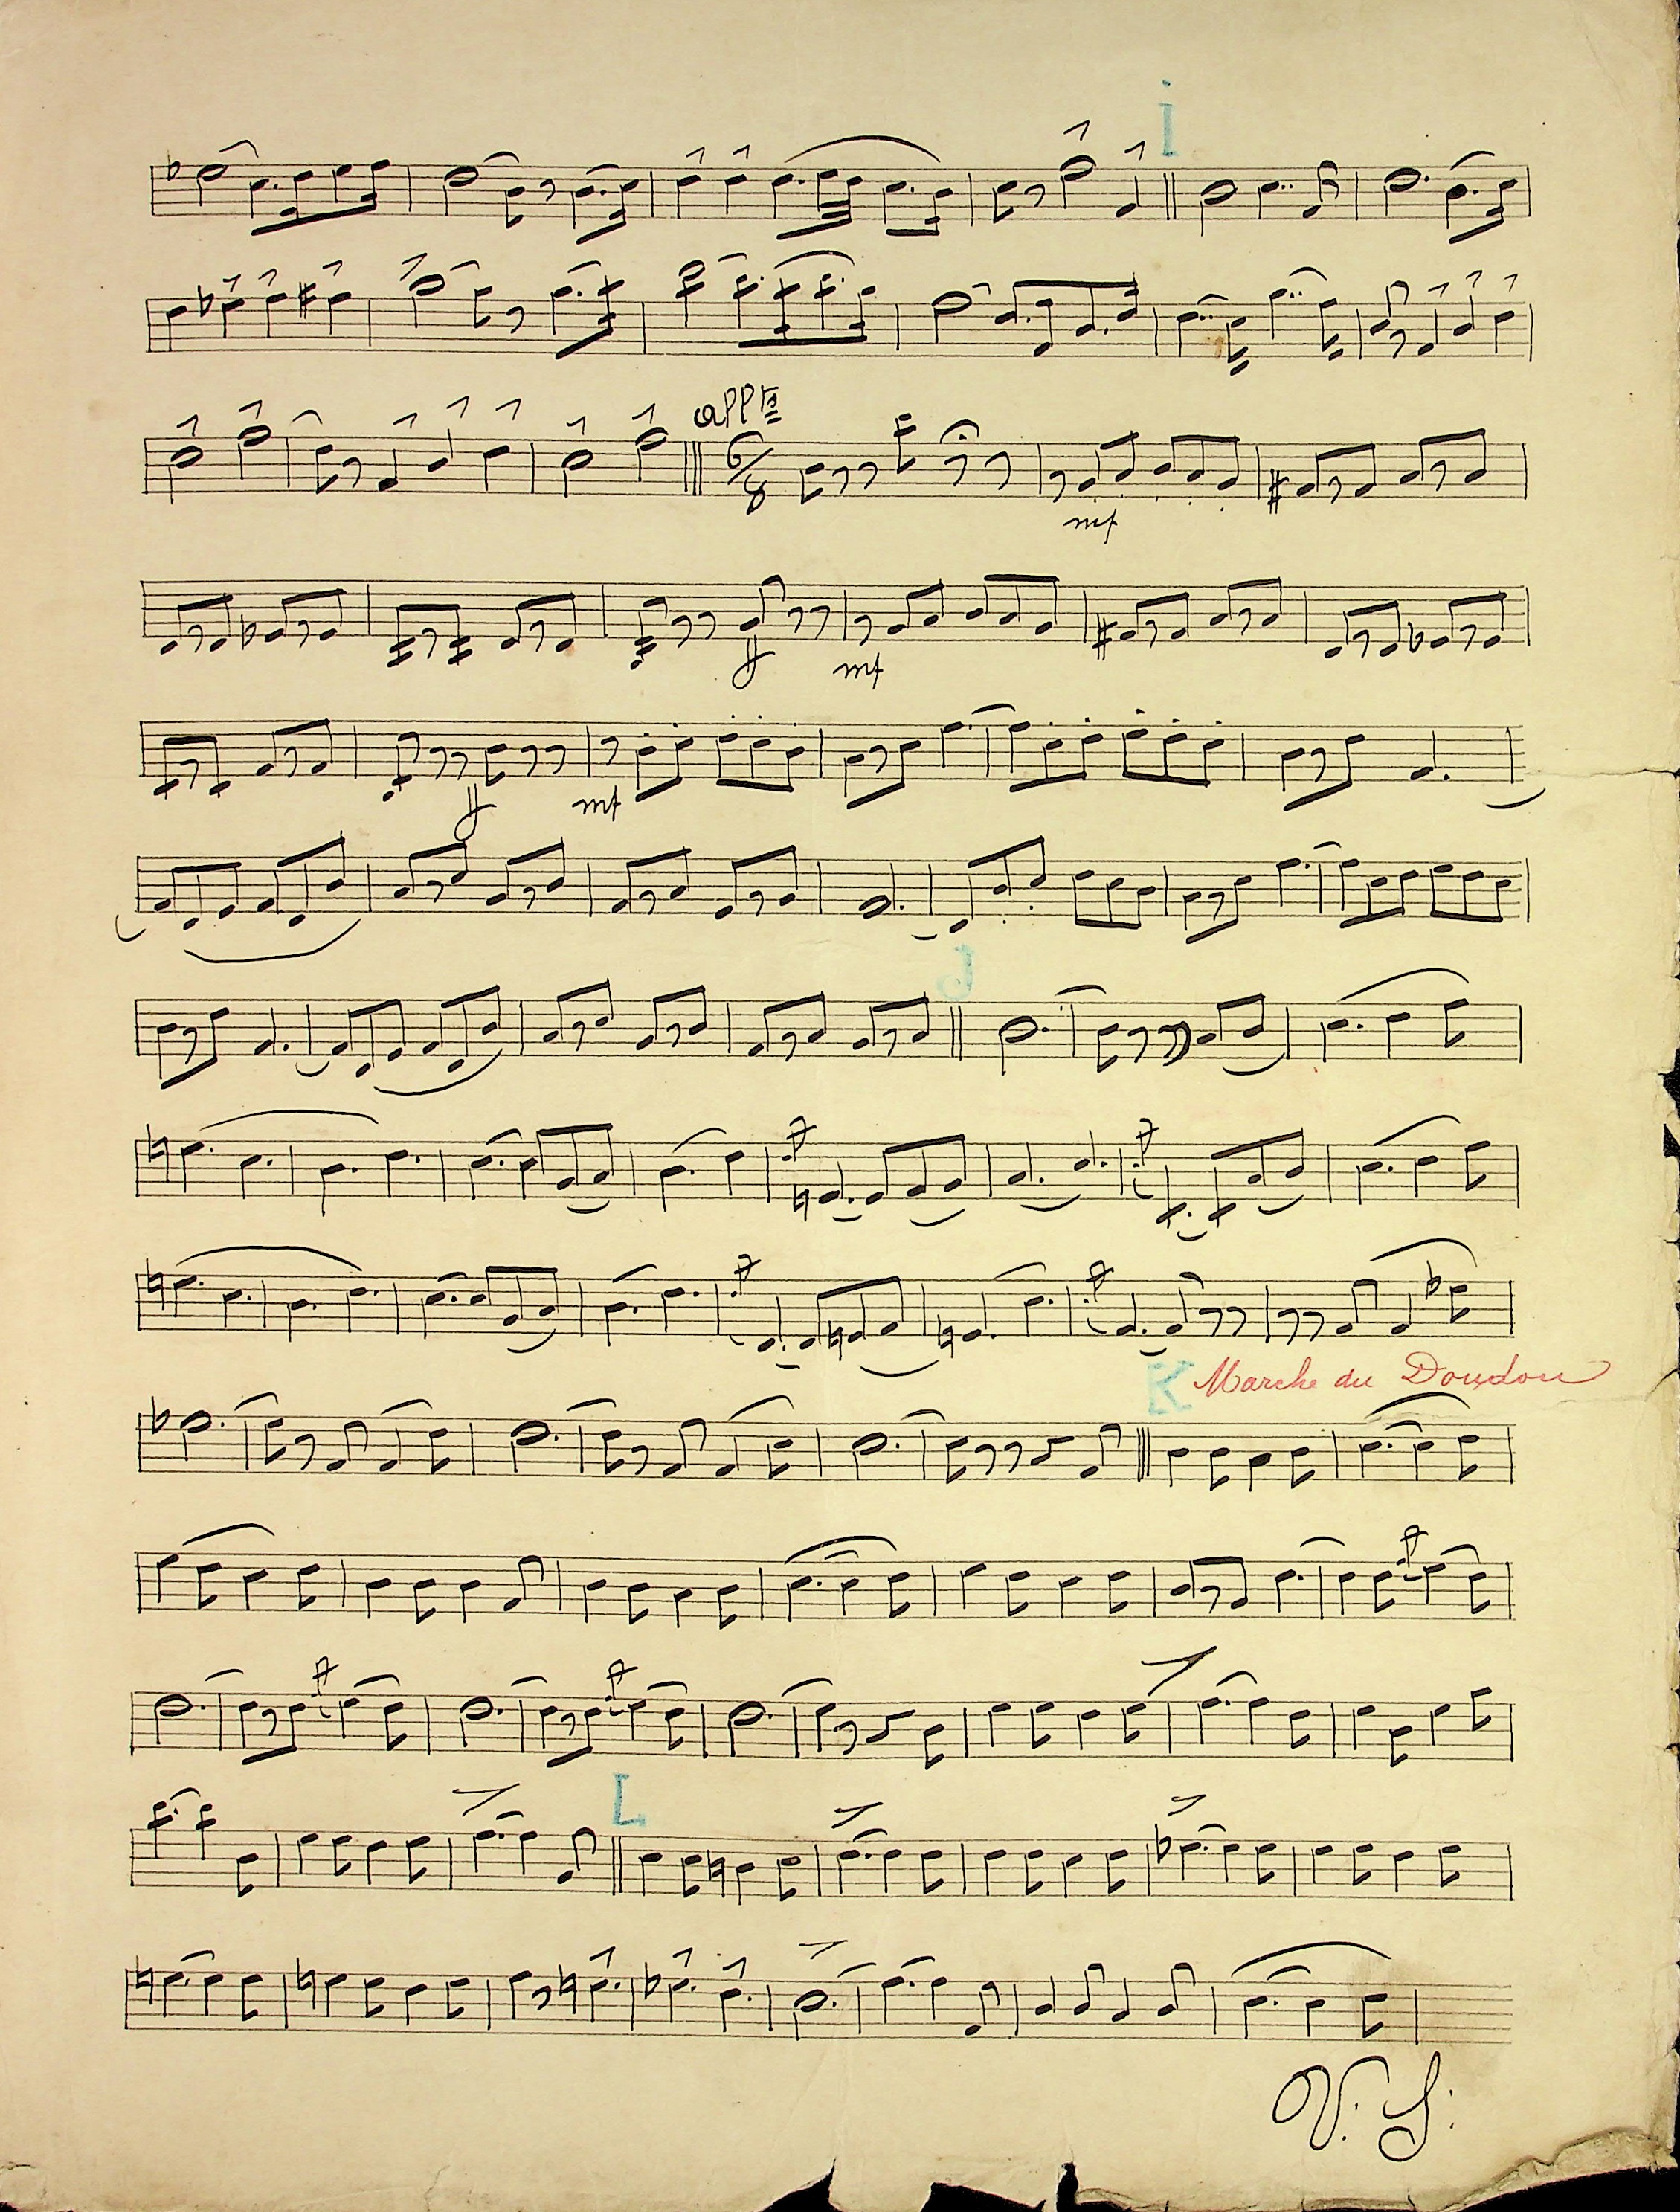 I
appto
6/8
mf
ff
mf
ff
mf
J
K Marche du Doudou
L
V. S.